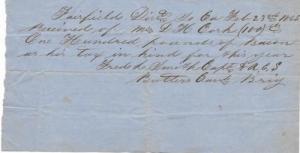 Fairfield Dist So Ca Feb 23rd 186
Received of Mr D H Cork (100)
One Hundred pounds of Bacon
as his tax in kind for this year
Fred de Smith Capt & A.C.S
Butlers Cav Brig